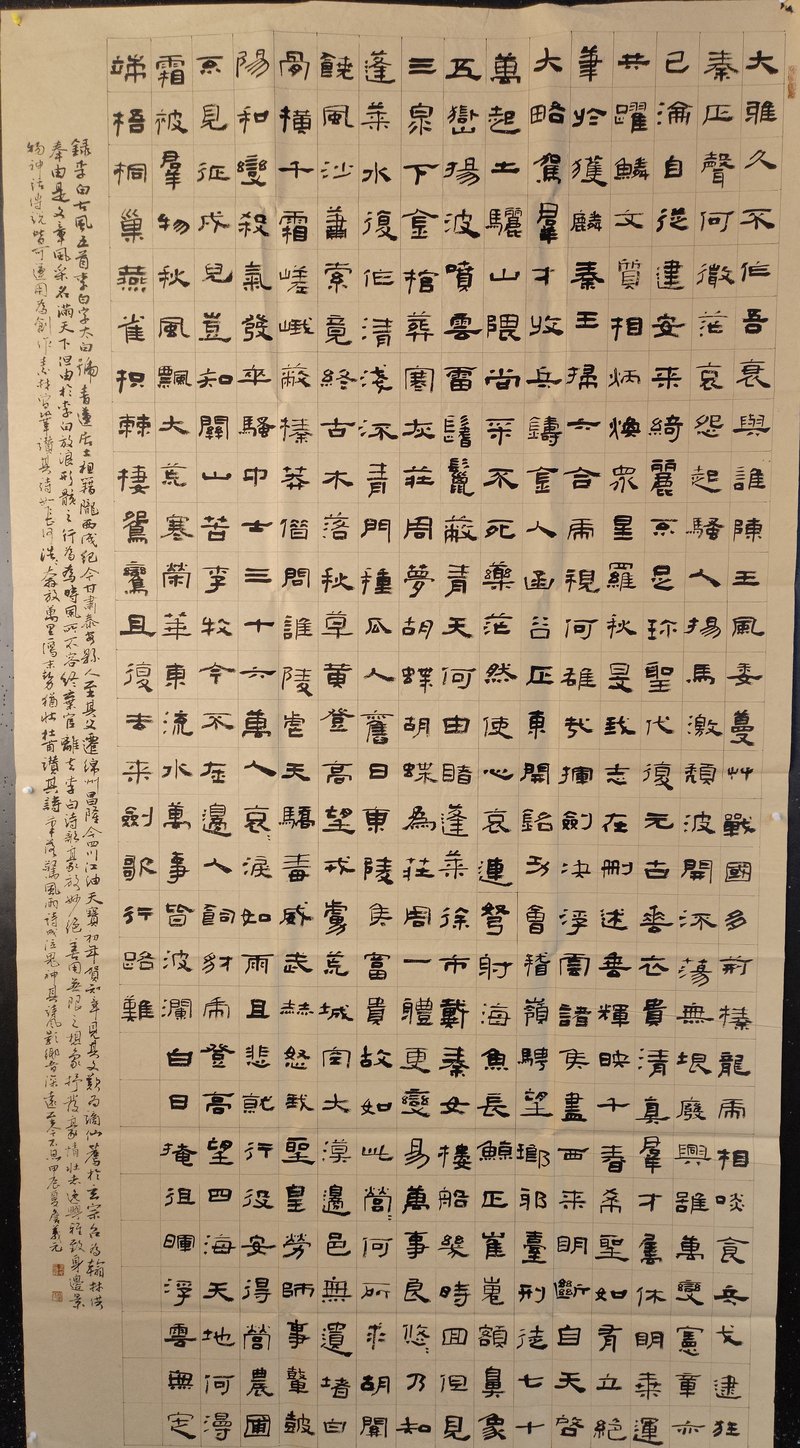 大雅久不作吾衰與誰陳王風委蔓艸戰國多荊榛龍虎相啖食兵戈逮狂
秦正聲何微茫哀怨起騷人揚馬激頹波開流蕩無垠廢興雖萬變憲章亦
已淪自從建安來綺麗不足珍聖代復元古垂衣貴清真羣才屬休明乘運
共躍鱗文質相炳煥眾星羅秋旻我志在刪述垂輝映千春希聖如有立絕
筆於獲麟秦王掃六合虎視何雄哉揮劍決浮雲諸侯盡西來明斷自天啟
大略駕羣才收兵鑄金人函谷正東開銘功會稽嶺騁望瑯邪臺刑徒七十
萬起土驪山隈尚采不死藥茫然使心哀連弩射海魚長鯨正崔嵬額鼻象
五嶽揚波噴雲雷鬐鬣蔽青天何由睹蓬萊徐市載秦女樓船幾時回但見
三泉下金棺葬寒灰莊周夢胡蝶胡蝶為莊周一體更變易萬事良悠〻乃知
蓬萊水復作清淺流青門種瓜人舊日東陵侯富貴故如此營〻何所求胡關
饒風沙蕭索竟終古木落秋草黃登高望戎虜荒城空大漠邊邑無遺堵白
骨橫千霜嵯峨蔽榛莽借問誰陵虐天驕毒威武赫怒我聖皇勞師事鼙鼓
陽和變殺氣發卒騷中土三十六萬人哀〻淚如雨且悲就行役安得營農圃
不見征戍兒豈知關山苦李牧今不在邊人飼豺虎登高望四海天地何漫
霜被羣物秋風飄大荒寒榮華東流水萬事皆波瀾白日掩徂暉浮雲無定
端梧桐巢燕雀枳棘棲鴛鸞且復去來劍歌行路難
錄李白古風五首李白字太白號青蓮居士祖籍隴西成紀今甘肅秦安縣人至其父遷綿州昌隆今四川江油天寶初年賀知章見其文歎為謫仙薦於玄宗召為翰林供
奉由是文章風采名滿天下但由於李白放浪形骸之行為為時風所不容終棄官離去李白詩歌豪放妙絕善用無限之想象抒發豪情壯志逸興雅致身邊景
物神話傳說皆可運用為創作素材讚其詩如長河浩〻奔放萬里杜甫讚其詩筆落驚風雨詩成泣鬼神其詩風影響深遠甲辰夏